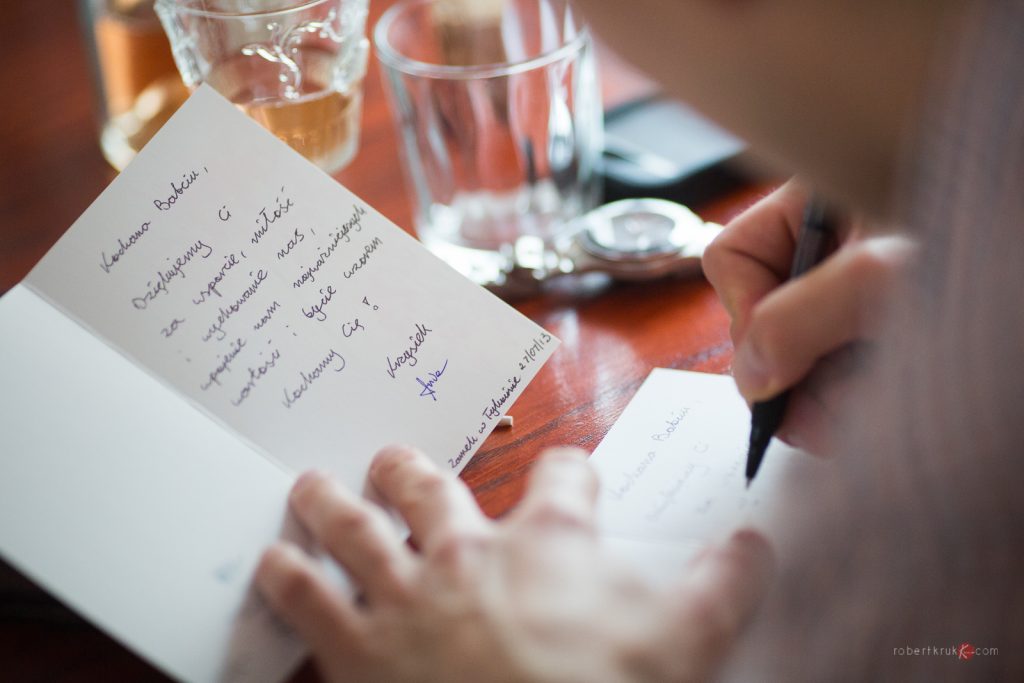 Kochana Babciu,
Dziękujemy Ci
za wsparcie, miłość
i wychowanie nas,
wpojenie nam najważniejszych
wartości i bycie wzorem
Kochamy Cię!
Krzysiek
Ania
Zamek w Tykocinie 27/07/13
Kochana Babciu,
Dziękujemy Ci
za
robertkrukK.com